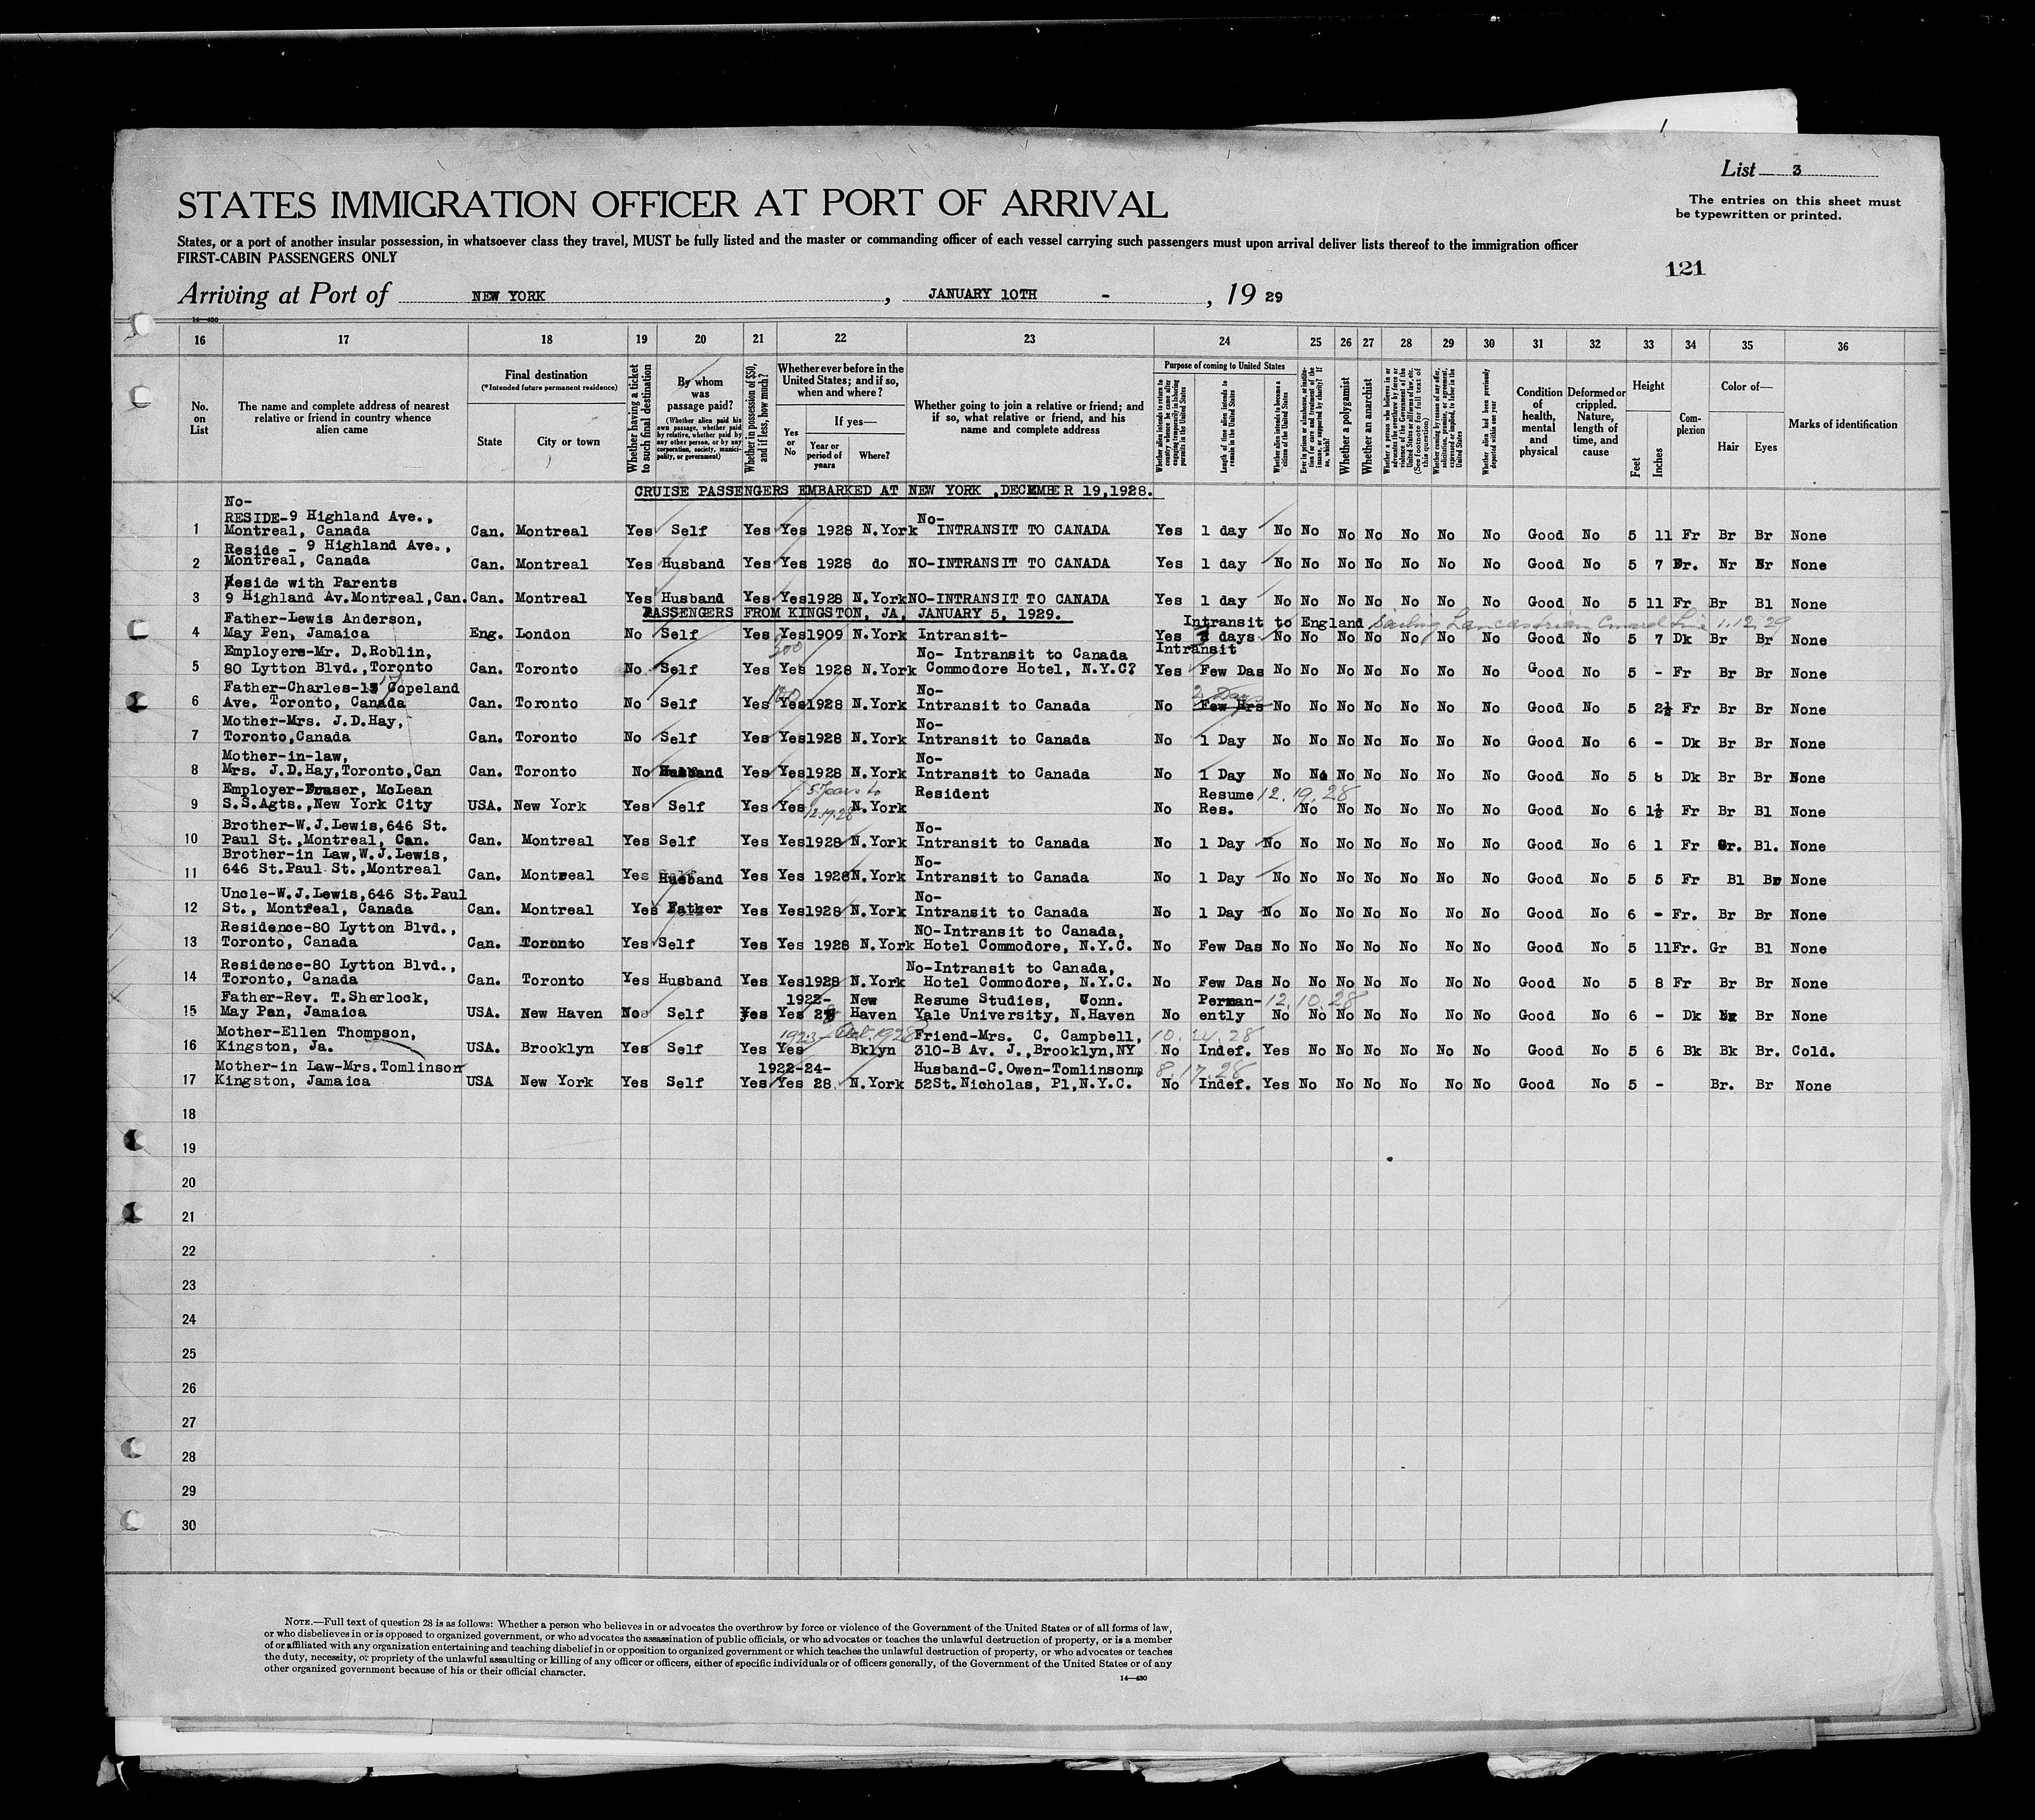 List 3
STATES IMMIGRATION OFFICER AT PORT OF ARRIVAL
The entries on this sheet must
be typewritten or printed.
States, or a port of another insular possession, in whatsoever class they travel, MUST be fully listed and the master or commanding officer of each vessel carrying such passengers must upon arrival deliver lists thereof to the immigration officer
FIRST-CABIN PASSENGERS ONLY
121
Arriving at Port of NEW YORK , JANUARY 10TH - , 19 29
14—430
16 17 18 19 20 21 22 23 24 25 26 27 28 29 30 31 32 33 34 35 36
No. on List
The name and complete address of nearest relative or friend in country whence alien came
Final destination
(*Intended future permanent residence)
State City or town
Whether having a ticket to such final destination
By whom was passage paid?
(Whether alien paid his own passage, whether paid by relative, whether paid by any other person, or by any corporation, society, municipality, or government)
Whether in possession of $50, and if less, how much?
Whether ever before in the United States; and if so, when and where?
Yes or No
If yes—
Year or period of years
Where?
Whether going to join a relative or friend; and if so, what relative or friend, and his name and complete address
Purpose of coming to United States
Whether alien intends to return to country whence he came after engaging temporarily in laboring pursuits in the United States
Length of time alien intends to remain in the United States
Whether alien intends to become a citizen of the United States
Ever in prison or almshouse, or institution for care and treatment of the insane, or supported by charity? If so, which?
Whether a polygamist
Whether an anarchist
Whether a person who believes in or advocates the overthrow by force or violence of the Government of the United States or all forms of law, etc. (See footnote for full text of this question)
Whether coming by reason of any offer, solicitation, promise, or agreement, expressed or implied, to labor in the United States
Whether alien had been previously deported within one year
Condition of health, mental and physical
Deformed or crippled. Nature, length of time, and cause
Height
Feet Inches
Complexion
Color of—
Hair Eyes
Marks of identification
CRUISE PASSENGERS EMBARKED AT NEW YORK ,DECEMBER 19,1928.
No-
RESIDE-9 Highland Ave., No-
1 Montreal, Canada Can. Montreal Yes Self Yes Yes 1928 N.York INTRANSIT TO CANADA Yes 1 day No No No No No No No Good No 5 11 Fr Br Br None
Reside - 9 Highland Ave.,
2 Montreal, Canada Can. Montreal Yes Husband Yes Yes 1928 do NO-INTRANSIT TO CANADA Yes 1 day No No No No No No No Good No 5 7 Br. Nr Nr None
Reside with Parents
3 9 Highland Av.Montreal,Can. Can. Montreal Yes Husband Yes Yes1928 N.York NO-INTRANSIT TO CANADA Yes 1 day No No No No No No No Good No 5 11 Fr Br Bl None
PASSENGERS FROM KINGSTON, JA, JANUARY 5, 1929.
Father-Lewis Anderson, Intransit to England Sailing Lancastrian Cunard Line 1.12.29
4 May Pen, Jamaica Eng. London No Self Yes Yes1909 N.York Intransit- Yes 3 days No No No No No No No Good No 5 7 Dk Br Br None
Employers-Mr. D.Roblin, 300 No- Intransit to Canada Intransit
5 80 Lytton Blvd.,Toronto Can. Toronto No Self Yes Yes 1928 N.York Commodore Hotel, N.Y.C? Yes Few Das No No No No No No No Good No 5 - Fr Br Br None
Father-Charles-15 17 Copeland 120 No- 2 Days
6 Ave. Toronto, Canada Can. Toronto No Self Yes Yes1928 N.York Intransit to Canada No Few Hrs No No No No No No No Good No 5 2½ Fr Br Br None
Mother-Mrs. J.D.Hay, No-
7 Toronto,Canada Can. Toronto No Self Yes Yes1928 N.York Intransit to Canada No 1 Day No No No No No No No Good No 6 - Dk Br Br None
Mother-in-law, No-
8 Mrs. J.D.Hay,Toronto,Can Can. Toronto No Husband Yes Yes1928 N.York Intransit to Canada No 1 Day No No No No No No No Good No 5 8 Dk Br Br None
Employer-Fraser, McLean 5 Years to Resident Resume 12.19.28
9 S.S.Agts.,New York City USA. New York Yes Self Yes Yes 12.19.28 N.York No Res. No No No No No No Good No 6 1½ Fr Br Bl None
Brother-W.J.Lewis,646 St. No-
10 Paul St.,Montreal, Can. Can. Montreal Yes Self Yes Yes1928 N.York Intransit to Canada No 1 Day No No No No No No No Good No 6 1 Fr Gr. Bl. None
Brother-in Law,W.J.Lewis, No-
11 646 St.Paul St.,Montreal Can. Montreal Yes Husband Yes Yes 1928 N.York Intransit to Canada No 1 Day No No No No No No No Good No 5 5 Fr Bl Br None
Uncle-W.J.Lewis,646 St.Paul No-
12 St., Montreal, Canada Can. Montreal Yes Father Yes Yes1928 N.York Intransit to Canada No 1 Day No No No No No No No Good No 6 - Fr. Br Br None
Residence-80 Lytton Blvd., NO-Intransit to Canada,
13 Toronto, Canada Can. Toronto Yes Self Yes Yes 1928 N.York Hotel Commodore, N.Y.C. No Few Das No No No No No No No Good No 5 11 Fr. Gr Bl None
Residence-80 Lytton Blvd., No-Intransit to Canada,
14 Toronto, Canada Can. Toronto Yes Husband Yes Yes1928 N.York Hotel Commodore, N.Y.C. No Few Das No No No No No No No Good No 5 8 Fr Br Br None
Father-Rev. T.Sherlock, 1922- New Resume Studies, Conn. Perman- 12.10.28
15 May Pan, Jamaica USA. New Haven No Self Yes Yes 28 Haven Yale University, N.Haven No ently No No No No No No No Good No 6 - Dk Br None
Mother-Ellen Thompson, 1923- Oct.1928 Friend-Mrs. C. Campbell, 10.24.28
16 Kingston, Ja. USA. Brooklyn Yes Self Yes Yes Bklyn 310-B Av. J.,Brooklyn,NY No Indef. Yes No No No No No No Good No 5 6 Bk Bk Br. Cold.
Mother-in Law-Mrs.Tomlinson 1922-24- Husband-C.Owen-Tomlinson 8.17.28
17 Kingston, Jamaica USA New York Yes Self Yes Yes 28. N.York 52St.Nicholas, Pl,N.Y.C. No Indef. Yes No No No No No No Good No 5 - Br. Br None
18
19
20
21
22
23
24
25
26
27
28
29
30
NOTE.—Full text of question 28 is as follows: Whether a person who believes in or advocates the overthrow by force or violence of the Government of the United States or of all forms of law,
or who disbelieves in or is opposed to organized government, or who advocates the assassination of public officials, or who advocates or teaches the unlawful destruction of property, or is a member
of or affiliated with any organization entertaining and teaching disbelief in or opposition to organized government or which teaches the unlawful destruction of property, or who advocates or teaches
the duty, necessity, or propriety of the unlawful assaulting or killing of any officer or officers, either of specific individuals or of officers generally, of the Government of the United States or of any
other organized government because of his or their official character.
14—430